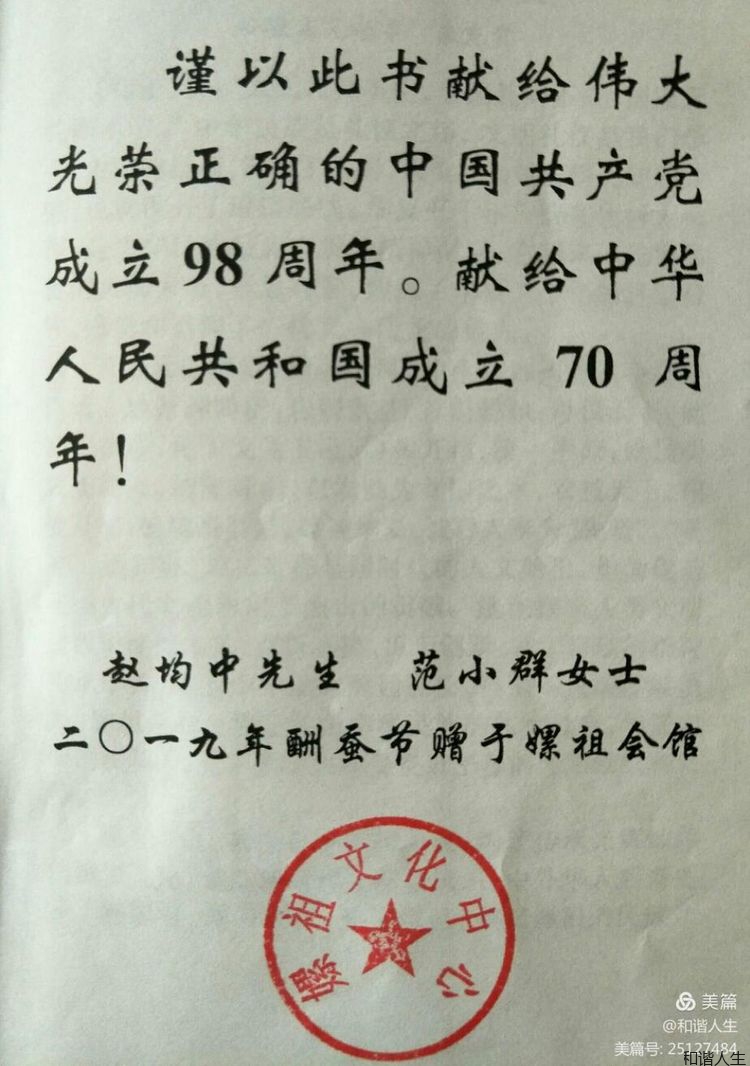 谨以此书献给伟大
光荣正确的中国共产党
成立98周年。献给中华
人民共和国成立70周
年！
赵均中先生 范小群女士
二〇一九年酬蚕节赠于嫘祖会馆
嫘祖文化中心
美篇
@和谐人生
美篇号: 25127484
和谐人生